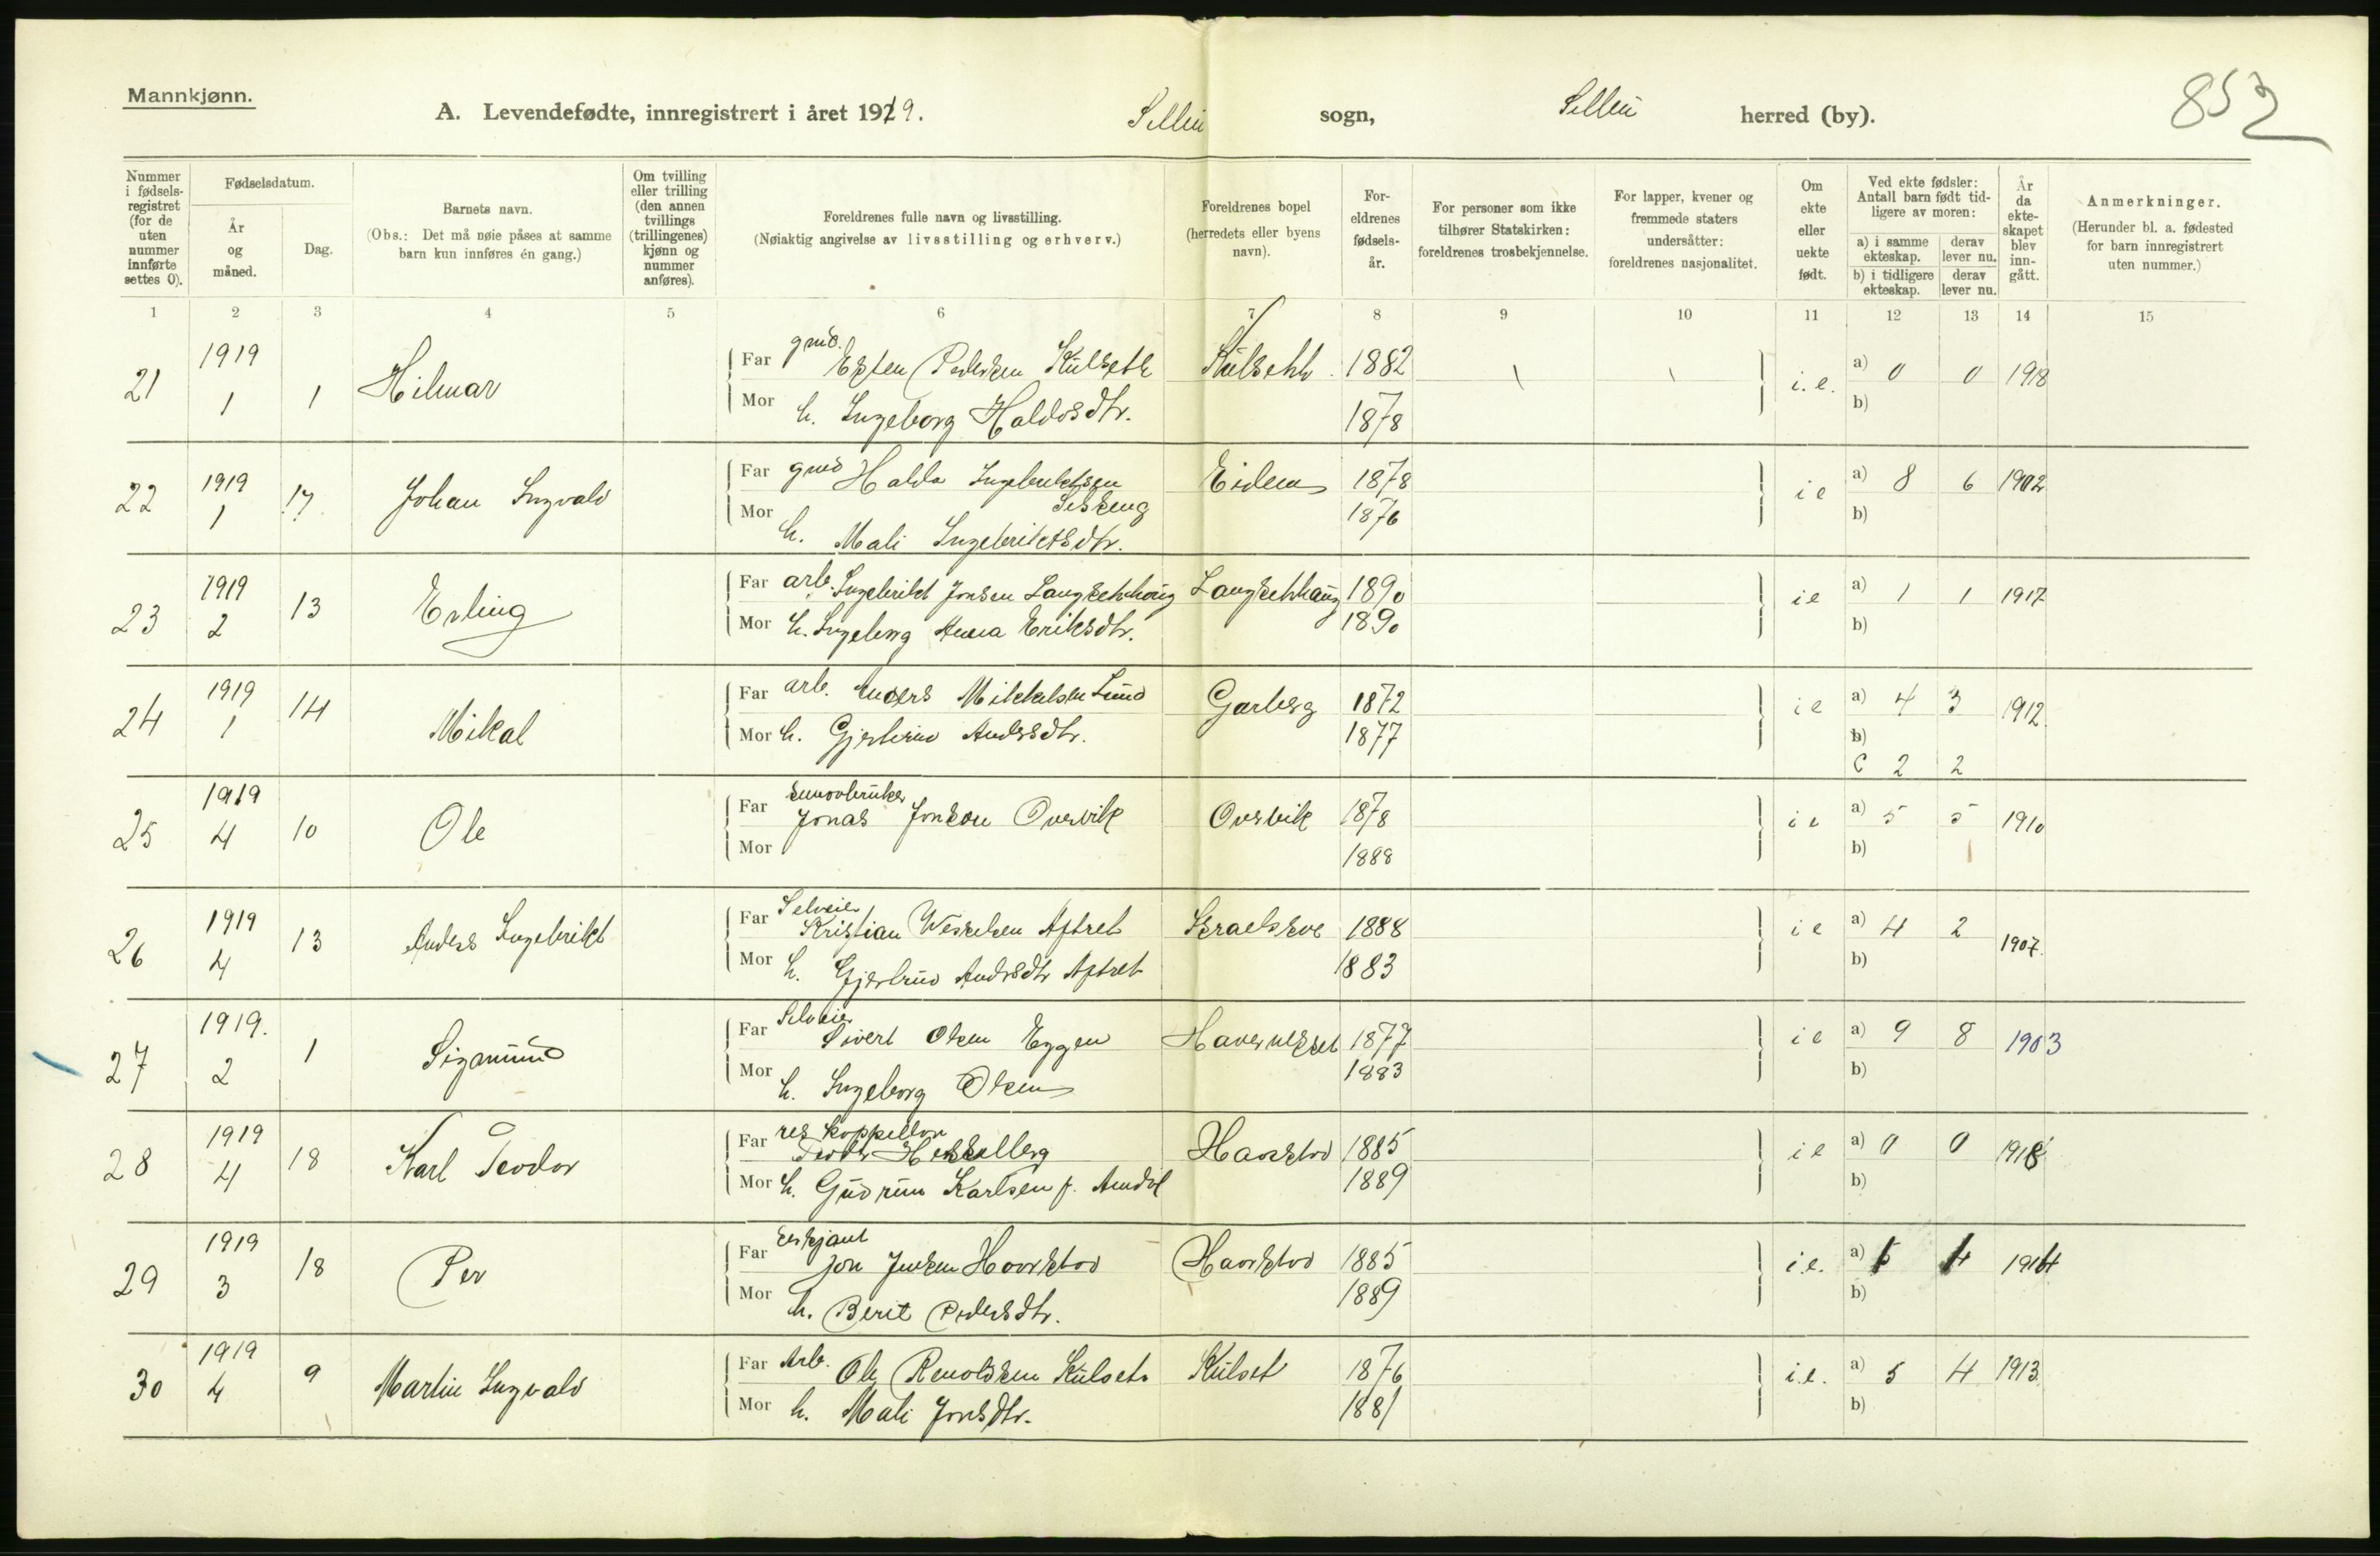 Mannkjønn.
A. Levendefødte, innregistrert i året 1919. Selbu sogn, Selbu herred (by).
852
Nummer i fødsels-registret (for de uten nummer innførte settes 0).
Fødselsdatum.
År og måned.
Dag.
Barnets navn.
(Obs.: Det må nøie påses at samme barn kun innføres én gang.)
Om tvilling eller trilling (den annen tvillings (trillingenes) kjønn og nummer anføres).
Foreldrenes fulle navn og livsstilling.
(Nøiaktig angivelse av livsstilling og erhverv.)
Foreldrenes bopel (herredets eller byens navn).
For-eldrenes fødsels-år.
For personer som ikke tilhører Statskirken: foreldrenes trosbekjennelse.
For lapper, kvener og fremmede staters undersåtter: foreldrenes nasjonalitet.
Om ekte eller uekte født.
Ved ekte fødsler: Antall barn født tid-ligere av moren:
a) i samme ekteskap. derav lever nu.
b) i tidligere ekteskap. derav lever nu.
År da ekte-skapet blev inn-gått.
Anmerkninger.
(Herunder bl. a. fødested for barn innregistrert uten nummer.)
1 2 3 4 5 6 7 8 9 10 11 12 13 14 15
21 1919 1 1 Hilmar Far gmd. Esten Pedersen Kulseth Kulseth 1882 i.e. a) 0 0 1918
Mor h. Ingeborg Haldosdtr. 1878 b)
22 1919 1 17 Johan Ingvald Far gmd Haldo Ingebrektsen Eidem 1878 i e a) 8 6 1902
Mor h. Mali Ingebriktsdtr. 1876 b)
23 1919 2 13 Erling Far arb. Ingebrikt Jonsen Langsethhaug Langsethhaug 1890 i e a) 1 1 1917
Mor h. Ingeborg Anna Eriksdtr. 1890 b)
24 1919 1 14 Mikal Far arb. Anders Mikkelsen Lund Garberg 1872 i e a) 4 3 1912.
Mor h. Gjertrud Andersdtr. 1877 b)
C 2 2
25 1919 4 10 Ole Far Jonas Jonsen Overvik Overvik 1878 i e a) 5 5 1910
Mor 1888 b)
26 1919 4 13 Anders Ingebrikt Far Selveier Kristian Aftret 1888 i e a) 4 2 1907.
Mor h. Gjertrud Andrsdtr Aftret 1883 b)
27 1919. 2 1 Sigmund Far Selveier Sivert Olsen Eggen 1877 i e a) 9 8 1903
Mor h. Ingeborg Olsen 1883 b)
28 1919 4 18 Karl Teodor Far res kappellan Teodor Hesselberg 1885 i e a) 0 0 1918
Mor h. Gudrun Karlsen f. 1889 b)
29 1919 3 18 Per Far Jon Jensen 1885 i.e. a) 5 4 1914
Mor h. Berit Pedersdtr. 1889 b)
30 1919 4 9 Martin Ingvald Far Arb. Ole Renoldsen Kulset Kulset 1876 i.e. a) 5 4 1913.
Mor h. Mali Jonsdtr. 1881 b)